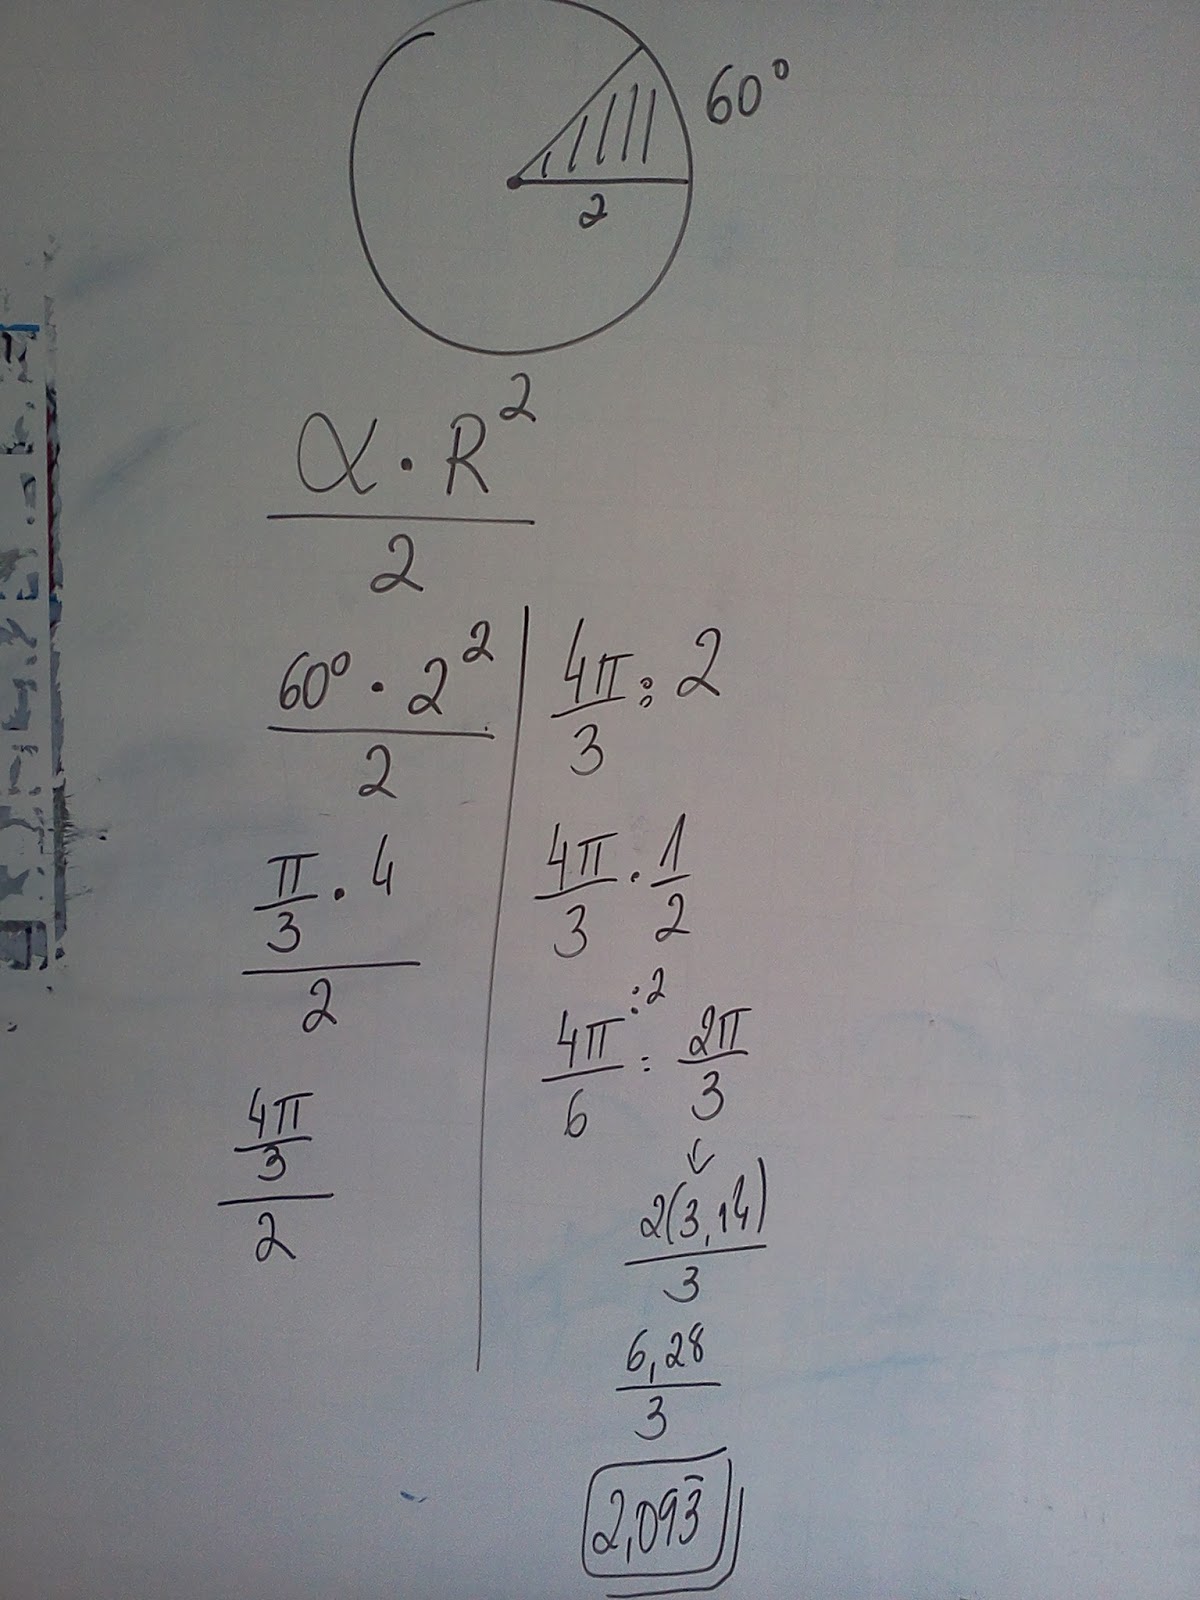 60°
2
α · R²
2
60° · 2²
2
π/3 · 4
2
4π/3
2
4π/3 : 2
4π/3 · 1/2
4π/6 :2 = 2π/3
↓
2(3,14)
3
6,28
3
2,093̄